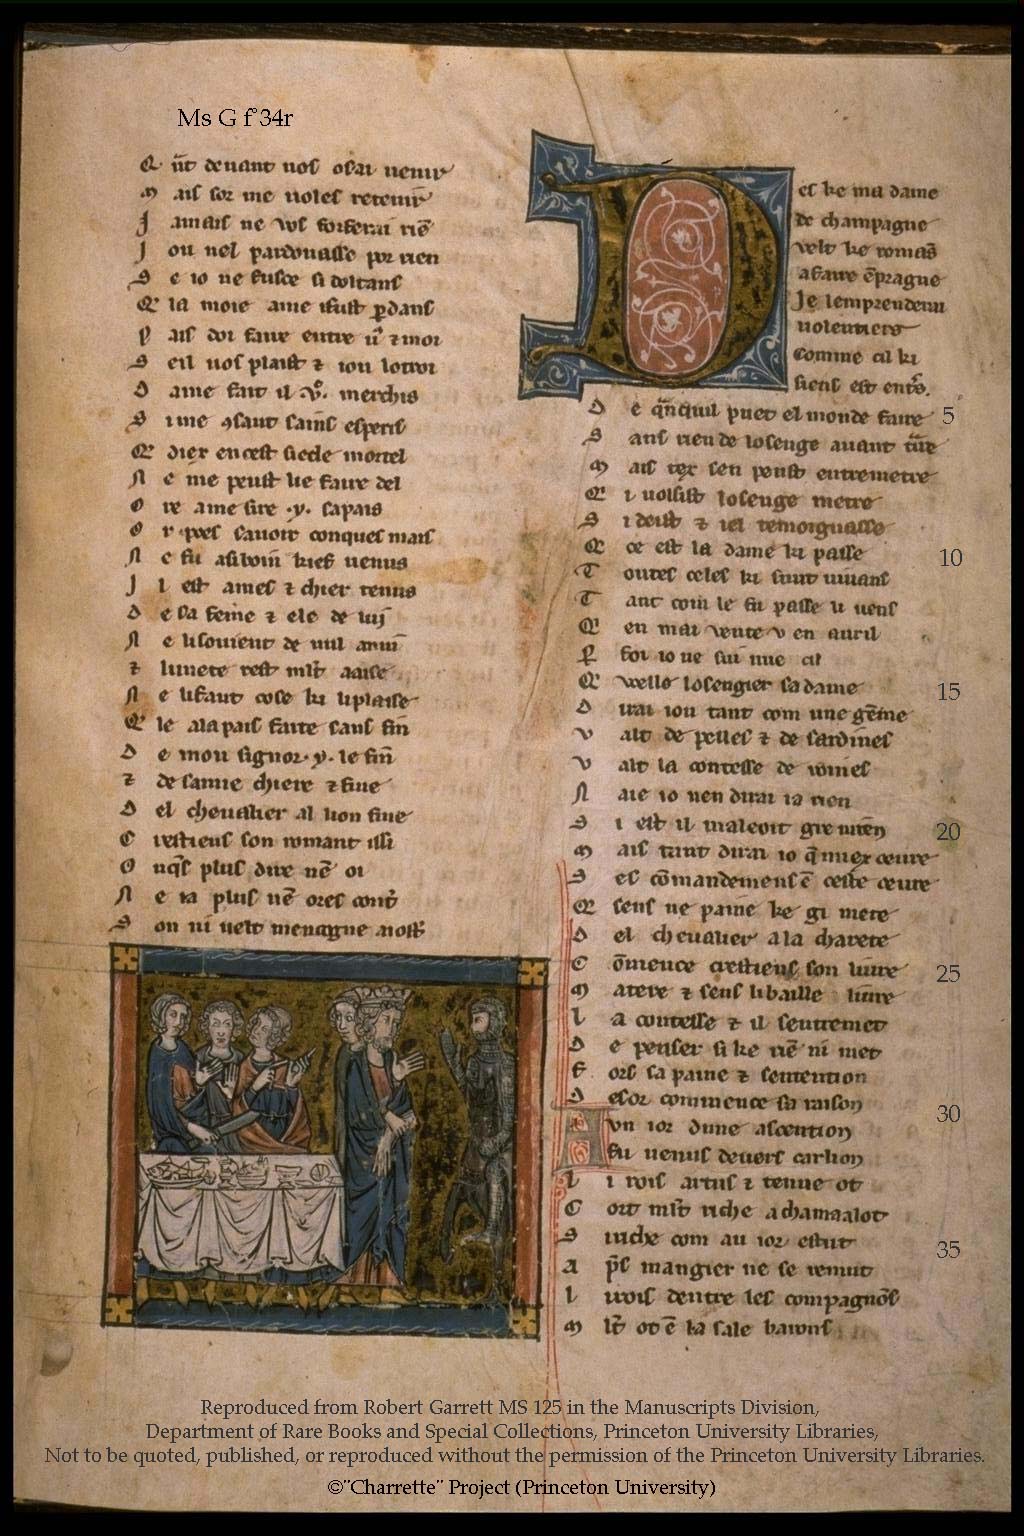 Ms G f°34r
Qūt deuant uos osai uenir
Mais sor me uoles retenir
Jamais ne vos forferai riē
Jou nel pardonasse por rien
Se io ne fusce si doltans
Qe la moie ame ifust ꝑdans
Pais doi faire entre ūs ⁊ moi
Seil uos plaist ⁊ iou lotroi
Dame fait il .v̊. merchis
Sime ꝯsaut sains esperis
Qe diex en cest siecle mortel
Ne me peust lie faire del
Ore ame sire .y. sapais
Or poes sauoir conques mais
Ne fu asiboin kief uenus
Jl est ames ⁊ chier tenus
De sa feme ⁊ ele de lui
Ne lisouient de nul anui
⁊ lunete rest ml̄t aaise
Ne lifaut cose ki liplaise
Qele alapais faite sans fin
De mon signor .y. le fin
⁊ de samie chiere ⁊ fine
Del cheualier al lion fine
Crestiens son romant issi
Onq̄s plus dire nē oi
Ne ia plus nē ores cont̄
Son ni uelt mencogne aiost̄
Des ke ma dame
de champagne
velt ke romās
afaire ēpragne
Je lemprenderai
uolentiers
comme cil ki
siens est entˢ.
De qānquil puet el monde faire
5
Sans rien de losenge auant t̄re
Mais tex sen peust entremetre
Qi uolsist losenge metre
Si deist ⁊ iel temoignasse
Qe ce est la dame ki passe
10
Toutes celes ki sunt uiuans
Tant com le fu passe li uens
Qi en mai vente v en auril
P foi io ne sui mie cil
Qi welle losengier sa dame
15
Dirai iou tant com une gēme
Valt de pelles ⁊ de sardines
Valt la contesse de roines
Naie io nen dirai ia rien
Si est il maleoit gre mien
20
Mais tant dirai io q̄ miex oeure
Ses cōmandemens ē ceste oeure
Qe sens ne paine ke gi mete
Del cheualier a la charete
Cōmence crestiens son liure
25
Matere ⁊ sens libaille liure
La contesse ⁊ il sentremet
De penser si ke riē ni met
Fors sa paine ⁊ sentention
Desor commence sa raison
30
A vn ior dune ascention
Fu uenus deuers carlion
Li rois artus ⁊ tenue ot
Cort ml̄t riche a chamaalot
Si riche com au ior estut
35
Ap̄s mangier ne se remut
Li rois dentre les compagnōs
Ml̄t ot ē la sale barons
Reproduced from Robert Garrett MS 125 in the Manuscripts Division,
Department of Rare Books and Special Collections, Princeton University Libraries,
Not to be quoted, published, or reproduced without the permission of the Princeton University Libraries.
©"Charrette" Project (Princeton University)